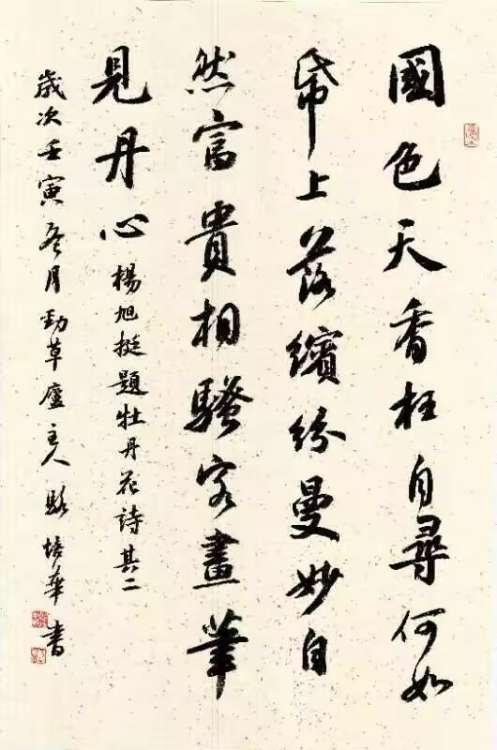 國色天香枉自尋何如
帋上落繽紛曼妙自
然富貴相騷客畫筆
見丹心 楊旭挺題牡丹花詩其二
歲次壬寅冬月勁草廬主人培華书